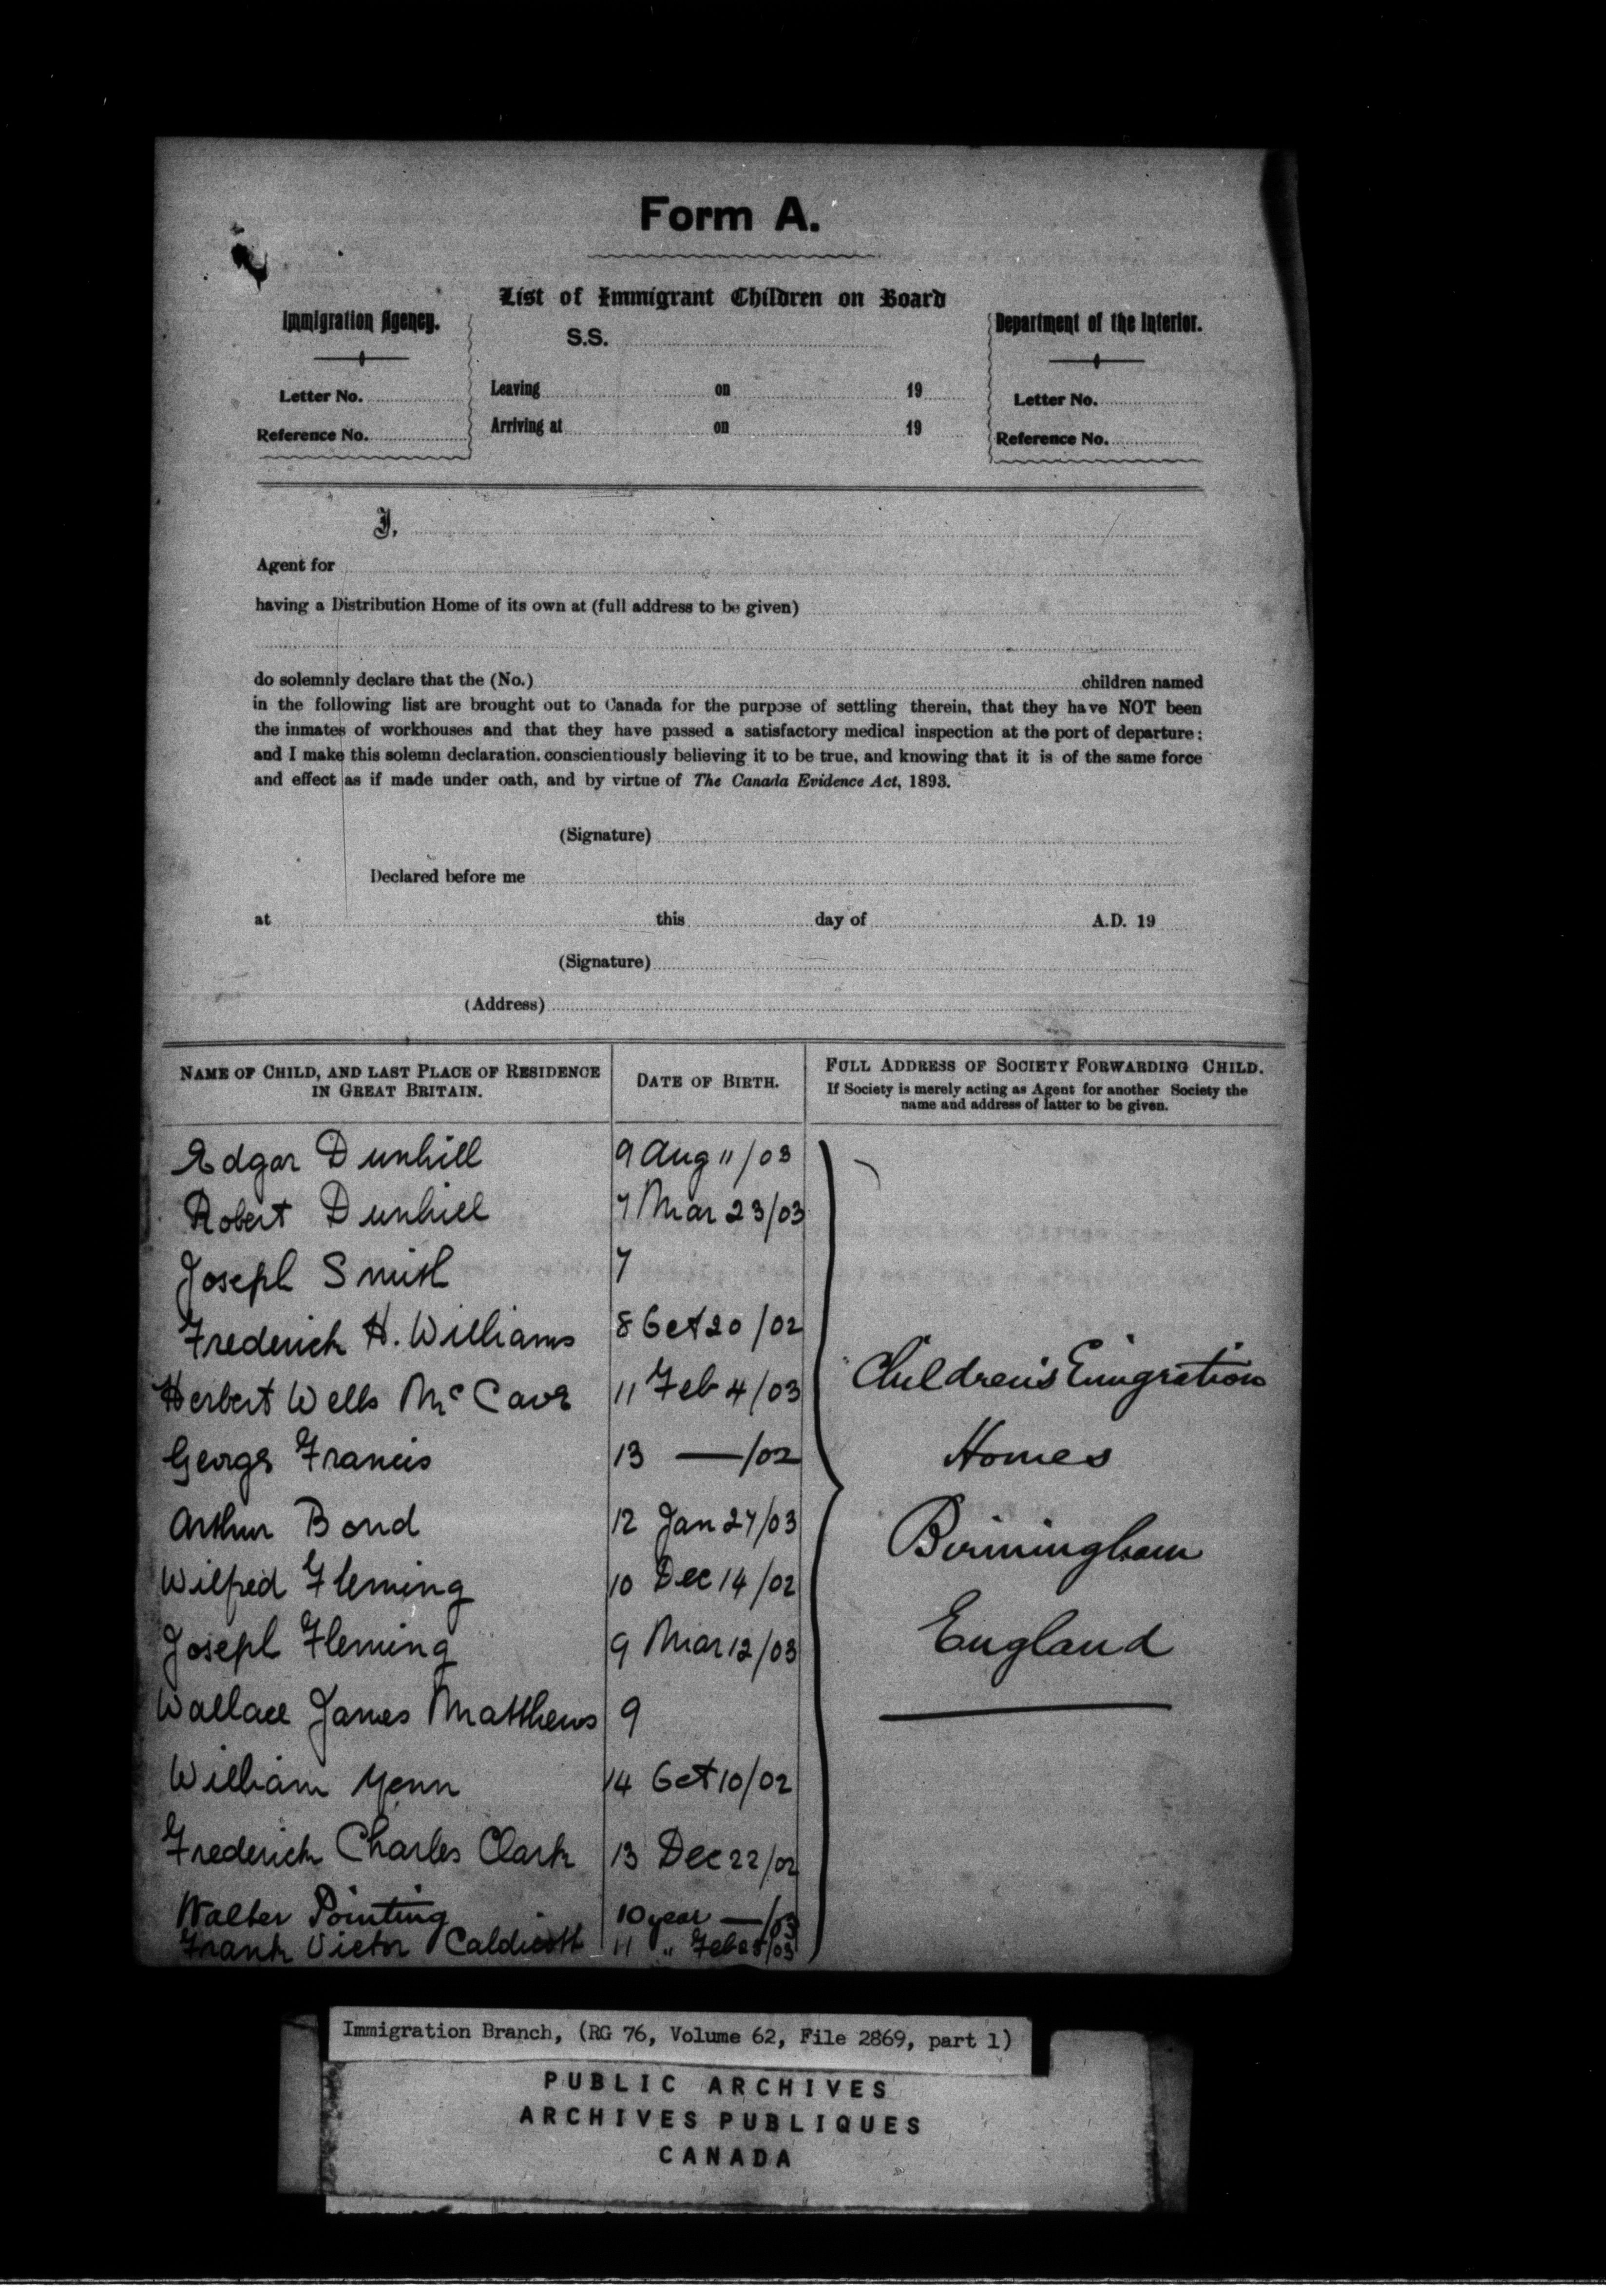 Form A.
List of Immigrant Children on Board
Immigration Agency.
S.S.
Department of the Interior.
Letter No.
Leaving on 19
Letter No.
Reference No.
Arriving at on 19
Reference No.
I,
Agent for
having a Distribution Home of its own at (full address to be given)
do solemnly declare that the (No.) children named
in the following list are brought out to Canada for the purpose of settling therein, that they have NOT been
the inmates of workhouses and that they have passed a satisfactory medical inspection at the port of departure;
and I make this solemn declaration. conscientiously believing it to be true, and knowing that it is of the same force
and effect as if made under oath, and by virtue of The Canada Evidence Act, 1893.
(Signature)
Declared before me
at this day of A.D. 19
(Signature)
(Address)
NAME OF CHILD, AND LAST PLACE OF RESIDENCE
IN GREAT BRITAIN.
DATE OF BIRTH.
FULL ADDRESS OF SOCIETY FORWARDING CHILD.
If Society is merely acting as Agent for another Society the
name and address of latter to be given.
Edgar Dunhill 9 Aug 11/03
Robert Dunhill 7 Mar 23/03
Joseph Smith 7
Frederick H. Williams 8 Oct 20/02
Herbert Wells McCave 11 Feb 4/03
George Francis 13 —/02
Arthur Bond 12 Jan 27/03
Wilfred Fleming 10 Dec 14/02
Joseph Fleming 9 Mar 12/03
Wallace James Matthews 9
William Yenn 14 Oct 10/02
Frederick Charles Clark 13 Dec 22/02
Walter Pointing 10 year —/03
Frank Victor Caldicott 11 " Feb /03
Children's Emigration
Homes
Birmingham
England
Immigration Branch, (RG 76, Volume 62, File 2869, part 1)
PUBLIC ARCHIVES
ARCHIVES PUBLIQUES
CANADA